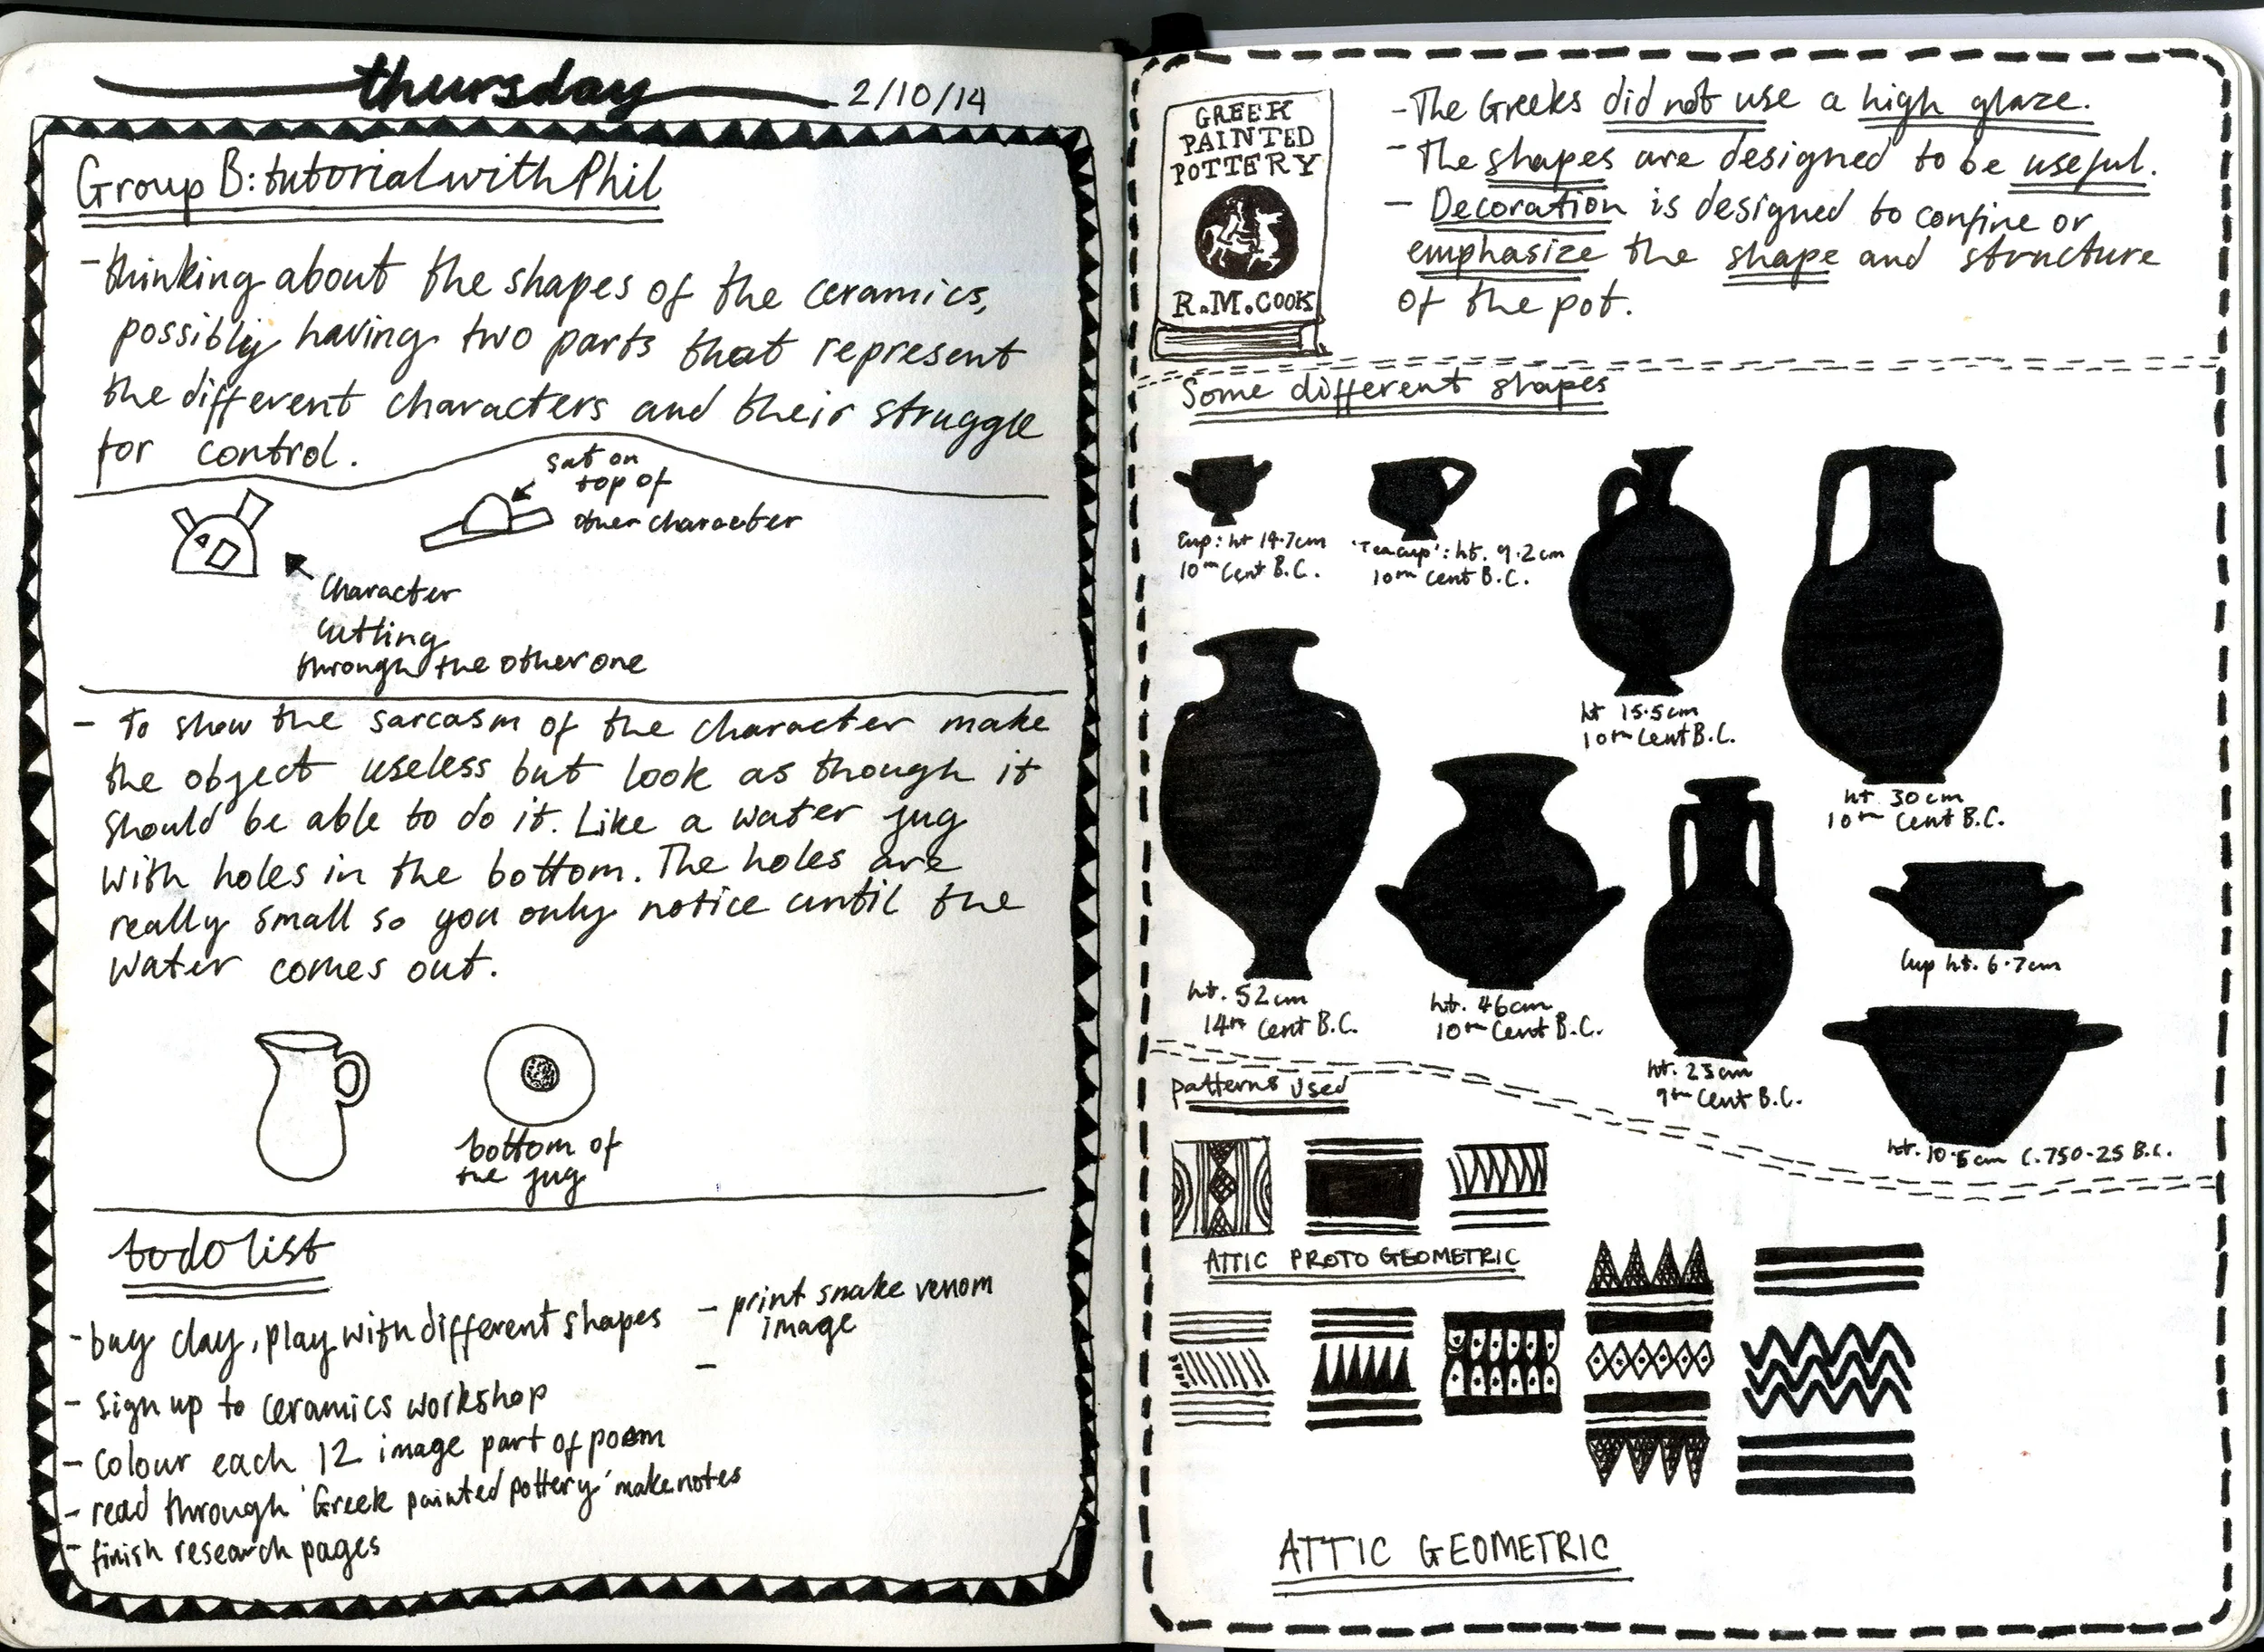 thursday 2/10/14
Group B: tutorial with Phil
- thinking about the shapes of the ceramics,
possibly having two parts that represent
the different characters and their struggle
for control.
sat on
top of
other character
Character
cutting
through the other one
- To show the sarcasm of the character make
the object useless but look as though it
should be able to do it. Like a water jug
with holes in the bottom. The holes are
really small so you only notice until the
water comes out.
bottom of
the jug
to do list
- buy clay, play with different shapes
- sign up to ceramics workshop
- colour each 12 image part of poem
- read through 'Greek painted pottery' make notes
- finish research pages
- print snake venom
image
-
GREEK
PAINTED
POTTERY
R.M.COOK
- The Greeks did not use a high glaze.
- The shapes are designed to be useful.
- Decoration is designed to confine or
emphasize the shape and structure
of the pot.
Some different shapes
Cup: ht 14.7cm
10th Cent B.C.
'Teacup': ht. 9.2cm
10th Cent B.C.
ht 15.5cm
10th Cent B.C.
ht. 30cm
10th Cent B.C.
ht. 52cm
14th Cent B.C.
ht. 46cm
10th Cent B.C.
ht. 23cm
9th Cent B.C.
Cup ht. 6.7cm
ht. 10.5cm C.750-25 B.C.
patterns used
ATTIC PROTO GEOMETRIC
ATTIC GEOMETRIC